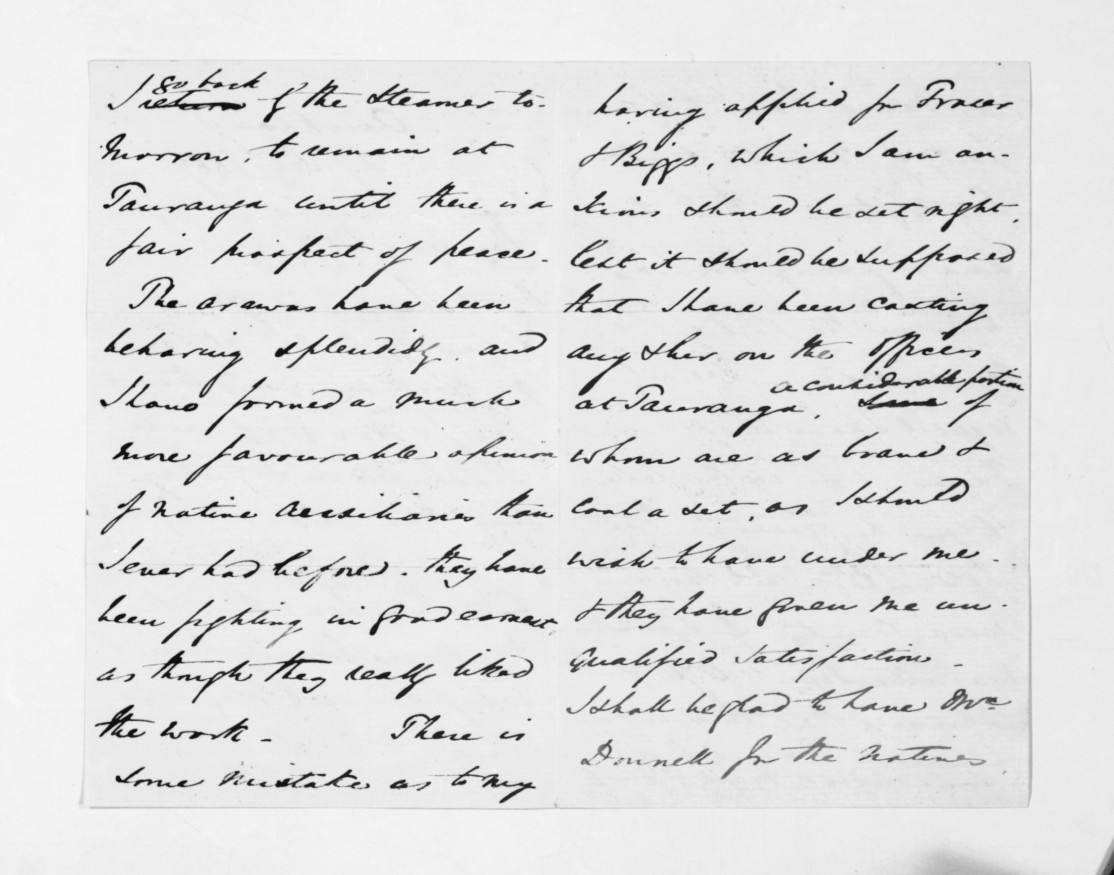 go back
I return by the steamer to-
morrow, to remain at
Tauranga until there is a
fair prospect of peace.
The Arawas have been
behaving splendidly. and
I have formed a much
more favourable opinion
of native auxiliaries than
I ever had before. they have
been fighting in good earnest,
as though they really liked
the work - There is
some mistake as to my
having applied for Fraser
& Biggs, which I am an-
xious should be set right,
lest it should be supposed
that I have been casting
any slur on the officers
a considerable portion
at Tauranga, some of
whom are as brave &
cool a set, as I should
wish to have under me.
& they have given me un-
qualified satisfaction.
I shall be glad to have Mc
Donnell for the natives.